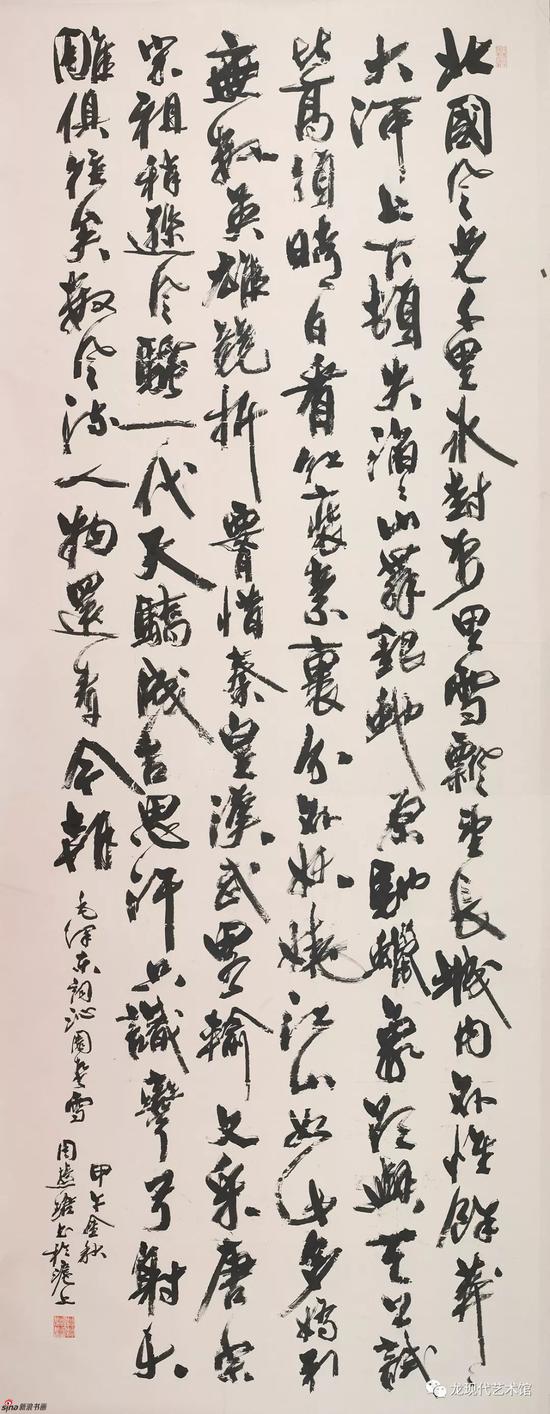 北國風光千里冰封萬里雪飄望長城内外惟餘莽々
大河上下頓失滔々山舞銀蛇原馳蠟象欲與天公試
比高須晴日看紅裝素裹分外妖嬈江山如此多嬌引
無數英雄競折腰惜秦皇漢武略輸文采唐宗
宋祖稍遜風騷一代天驕成吉思汗只識彎弓射大
雕俱往矣數風流人物還看今朝
毛澤東詞沁園春雪
甲午金秋
周慧珺書於滬上
sina新浪书画
龙现代艺术馆